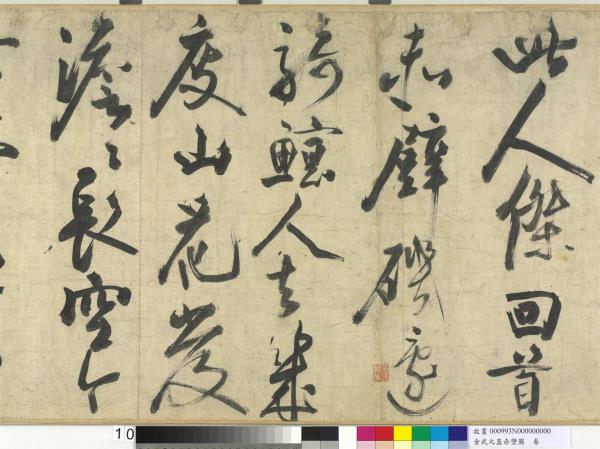 此人傑回首
赤壁磯邊
騎鯨人去幾
度山花發
澹〻長空今
10
故畫 000993N000000000
金武元直赤壁圖 卷